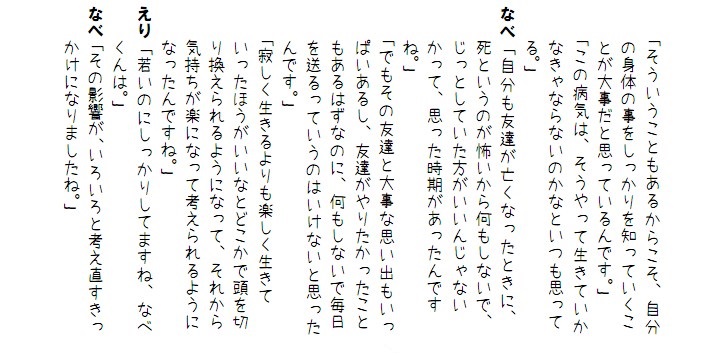 「そういうこともあるからこそ、自分
の身体の事をしっかりを知っていくこ
とが大事だと思っているんです。」
「この病気は、そうやって生きていか
なきゃならないのかなといつも思って
る。」
なべ「自分も友達が亡くなったときに、
死というのが怖いから何もしないで、
じっとしていた方がいいんじゃない
かって、思った時期があったんです
ね。」
「でもその友達と大事な思い出もいっ
ぱいあるし、友達がやりたかったこと
もあるはずなのに、何もしないで毎日
を送るっていうのはいけないと思った
んです。」
「寂しく生きるよりも楽しく生きて
いったほうがいいなとどこかで頭を切
り換えられるようになって、それから
気持ちが楽になって考えられるように
なったんですね。」
えり「若いのにしっかりしてますね、なべ
くんは。」
なべ「その影響が、いろいろと考え直すきっ
かけになりましたね。」